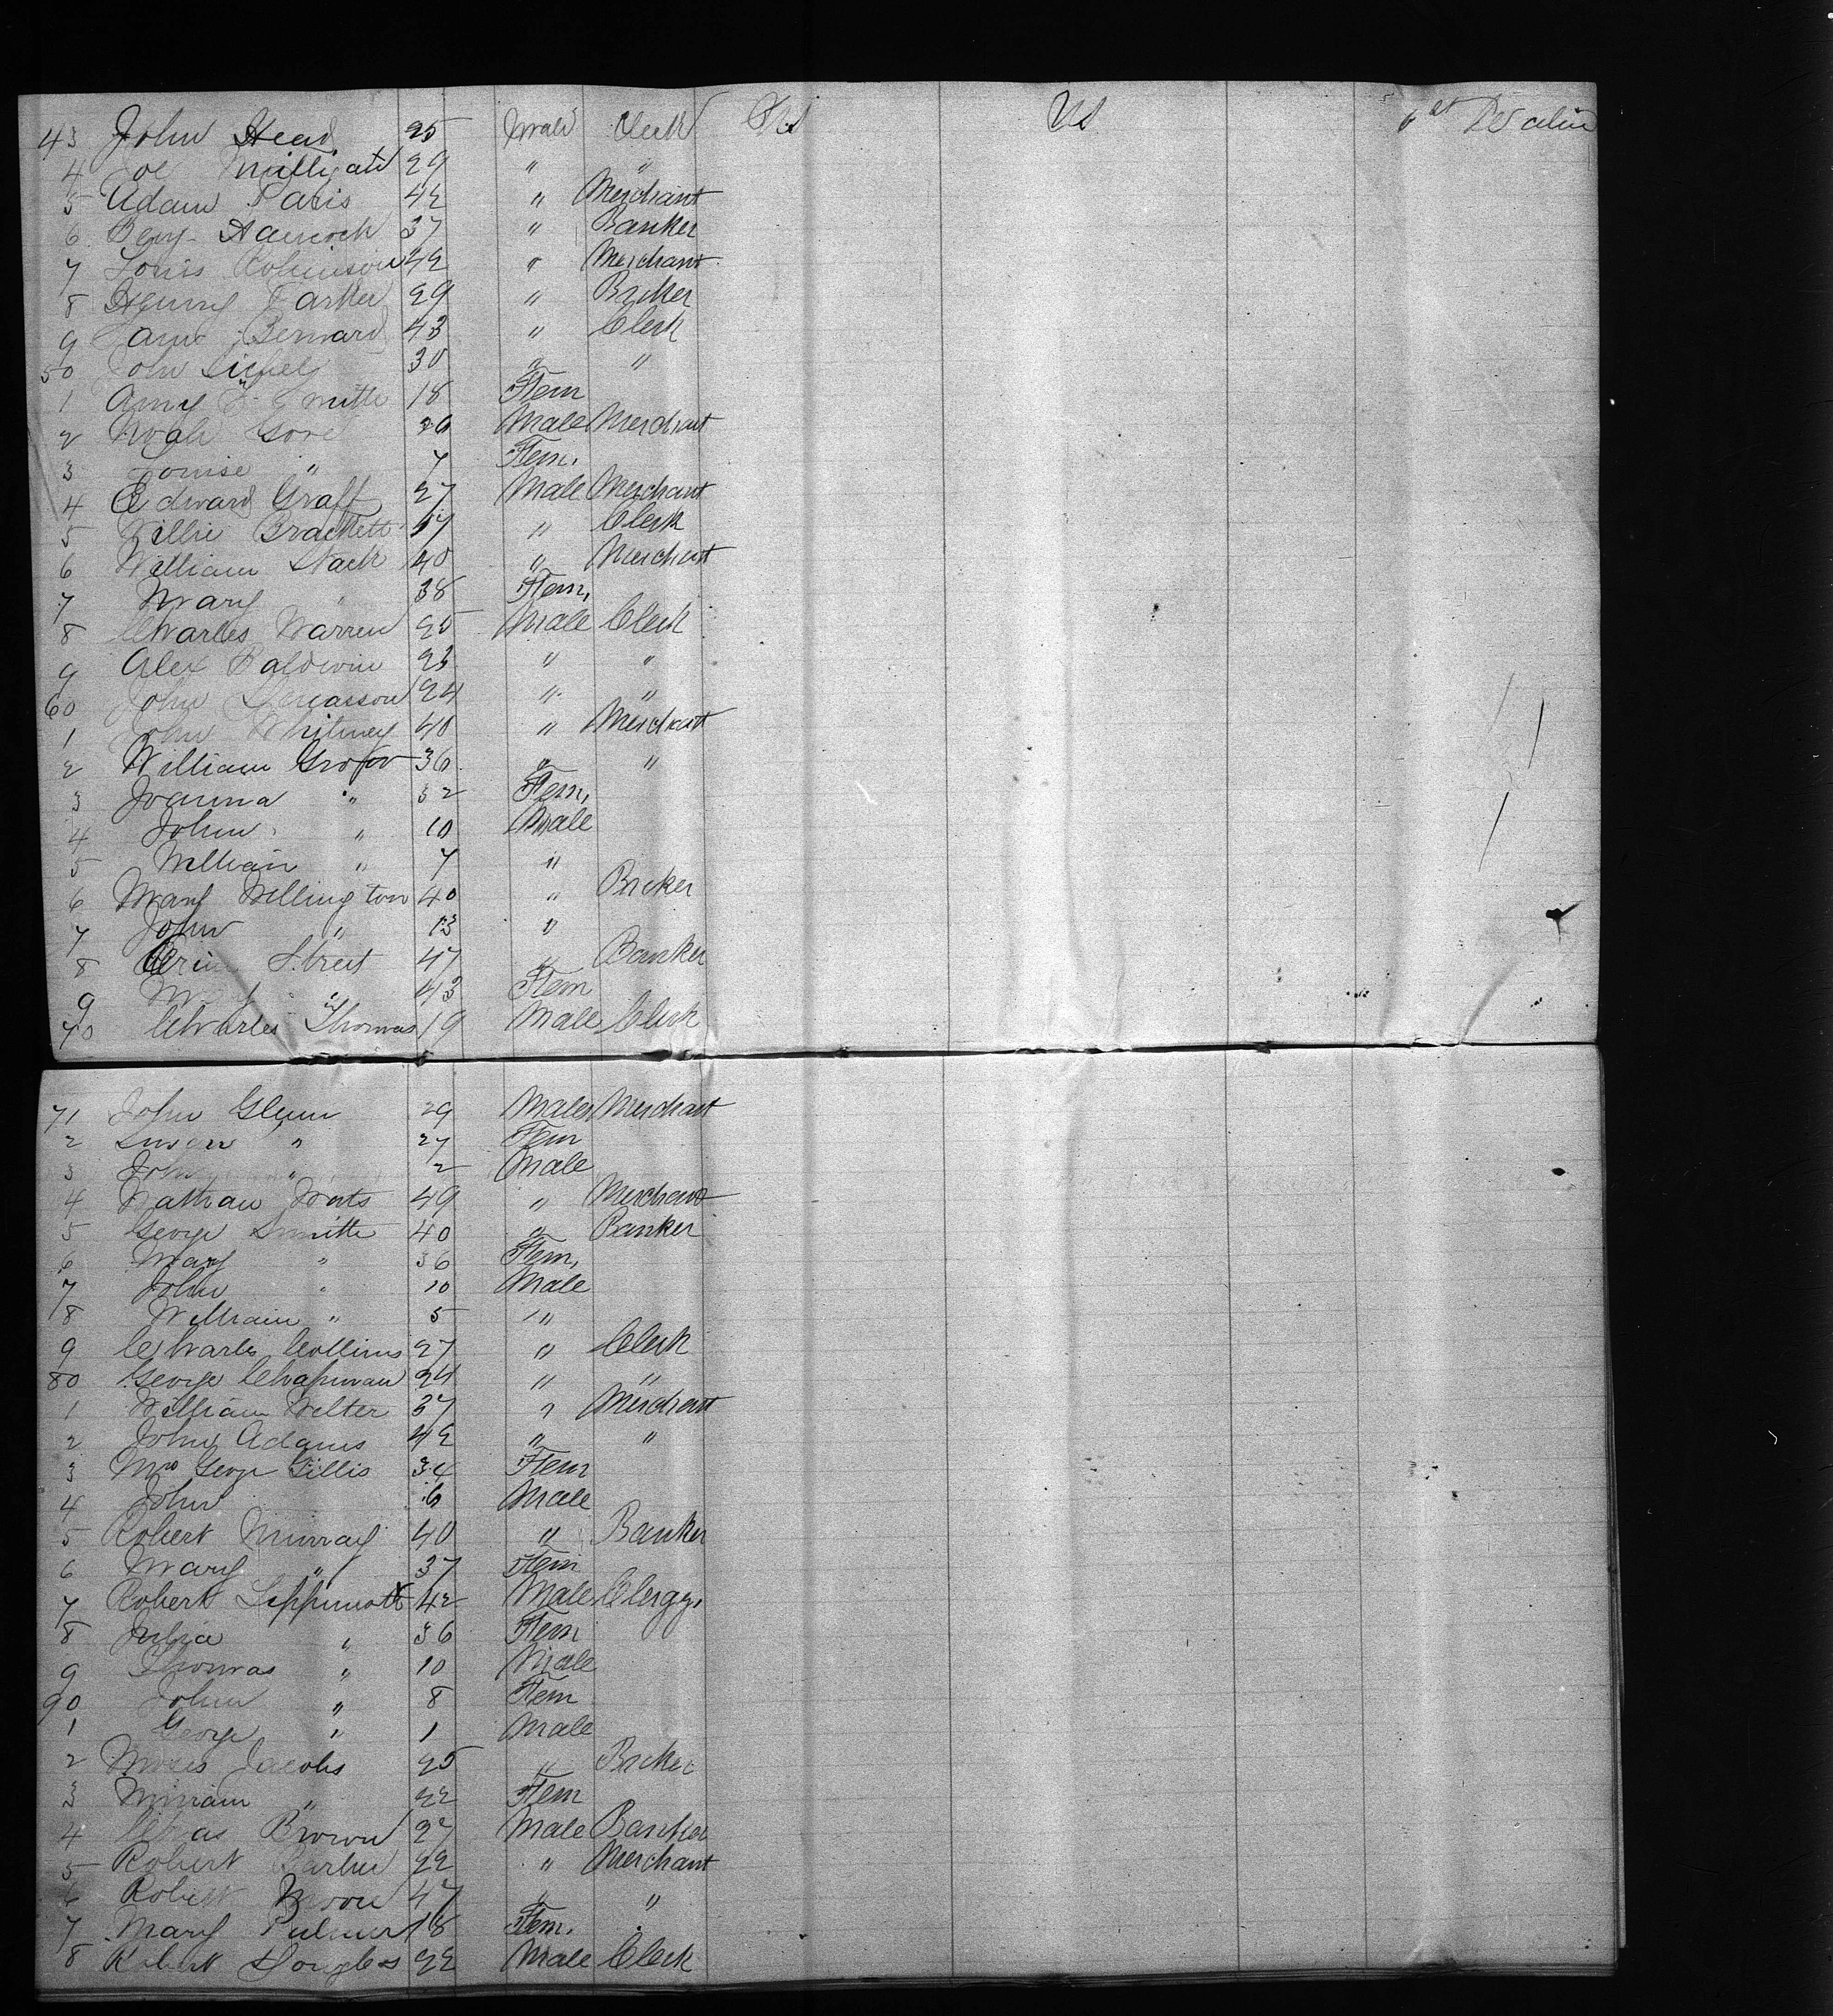 43 John Head 25 Male Clerk US US 1st Cabin
4 Joe Milligan 29 " "
5 Adam Paris 42 " Merchant
6 Benj. Hancock 37 " Banker
7 Louis Robinson 42 " Merchant
8 Henry Parker 29 " Broker
9 James Bernard 43 " Clerk
50 John 30 " "
1 Amy Smith 18 Fem
2 Noah Gove 26 Male Merchant
3 Louise " 7 Fem.
4 Edward Graff 27 Male Merchant
5 Willie Brackett 17 " Clerk
6 William Nack 40 " Merchant
7 Mary " 38 Fem,
8 Charles Warren 25 Male Clerk
9 Alex Baldwin 23 " "
60 John 24 " "
1 John Whitney 40 " Merchant
2 William 36 " "
3 Joanna " 32 Fem,
4 John " 10 Male
5 William " 7 "
6 Mary Wellington 40 " Broker
7 John " 13 "
8 Street 47 " Banker
9 " 43 Fem
70 Charles Thomas 19 Male Clerk
71 John Glenn 29 Male Merchant
2 Susan " 27 Fem
3 John " 2 Male
4 Nathan 49 " Merchant
5 George Smith 40 " Banker
6 Mary " 36 Fem,
7 John " 10 Male
8 William " 5 "
9 Charles Collins 27 " Clerk
80 George Chapman 24 " "
1 William Welter 37 " Merchant
2 John Adams 42 " "
3 Mrs George Gillis 34 Fem
4 John 6 Male
5 Robert Murray 40 " Banker
6 Mary " 37 Fem
7 Robert Lippincott 42 Male Clergy.
8 Julia " 36 Fem
9 Thomas " 10 Male
90 John " 8 Fem
1 George " 1 Male
2 Moses Jacobs 25 " Broker
3 Miriam " 22 Fem
4 Chas Brown 27 Male Banker
5 Robert Barber 22 " Merchant
6 Robert Moore 47 " "
7 Mary Pulmer 18 Fem.
8 Robert Douglas 22 Male Clerk